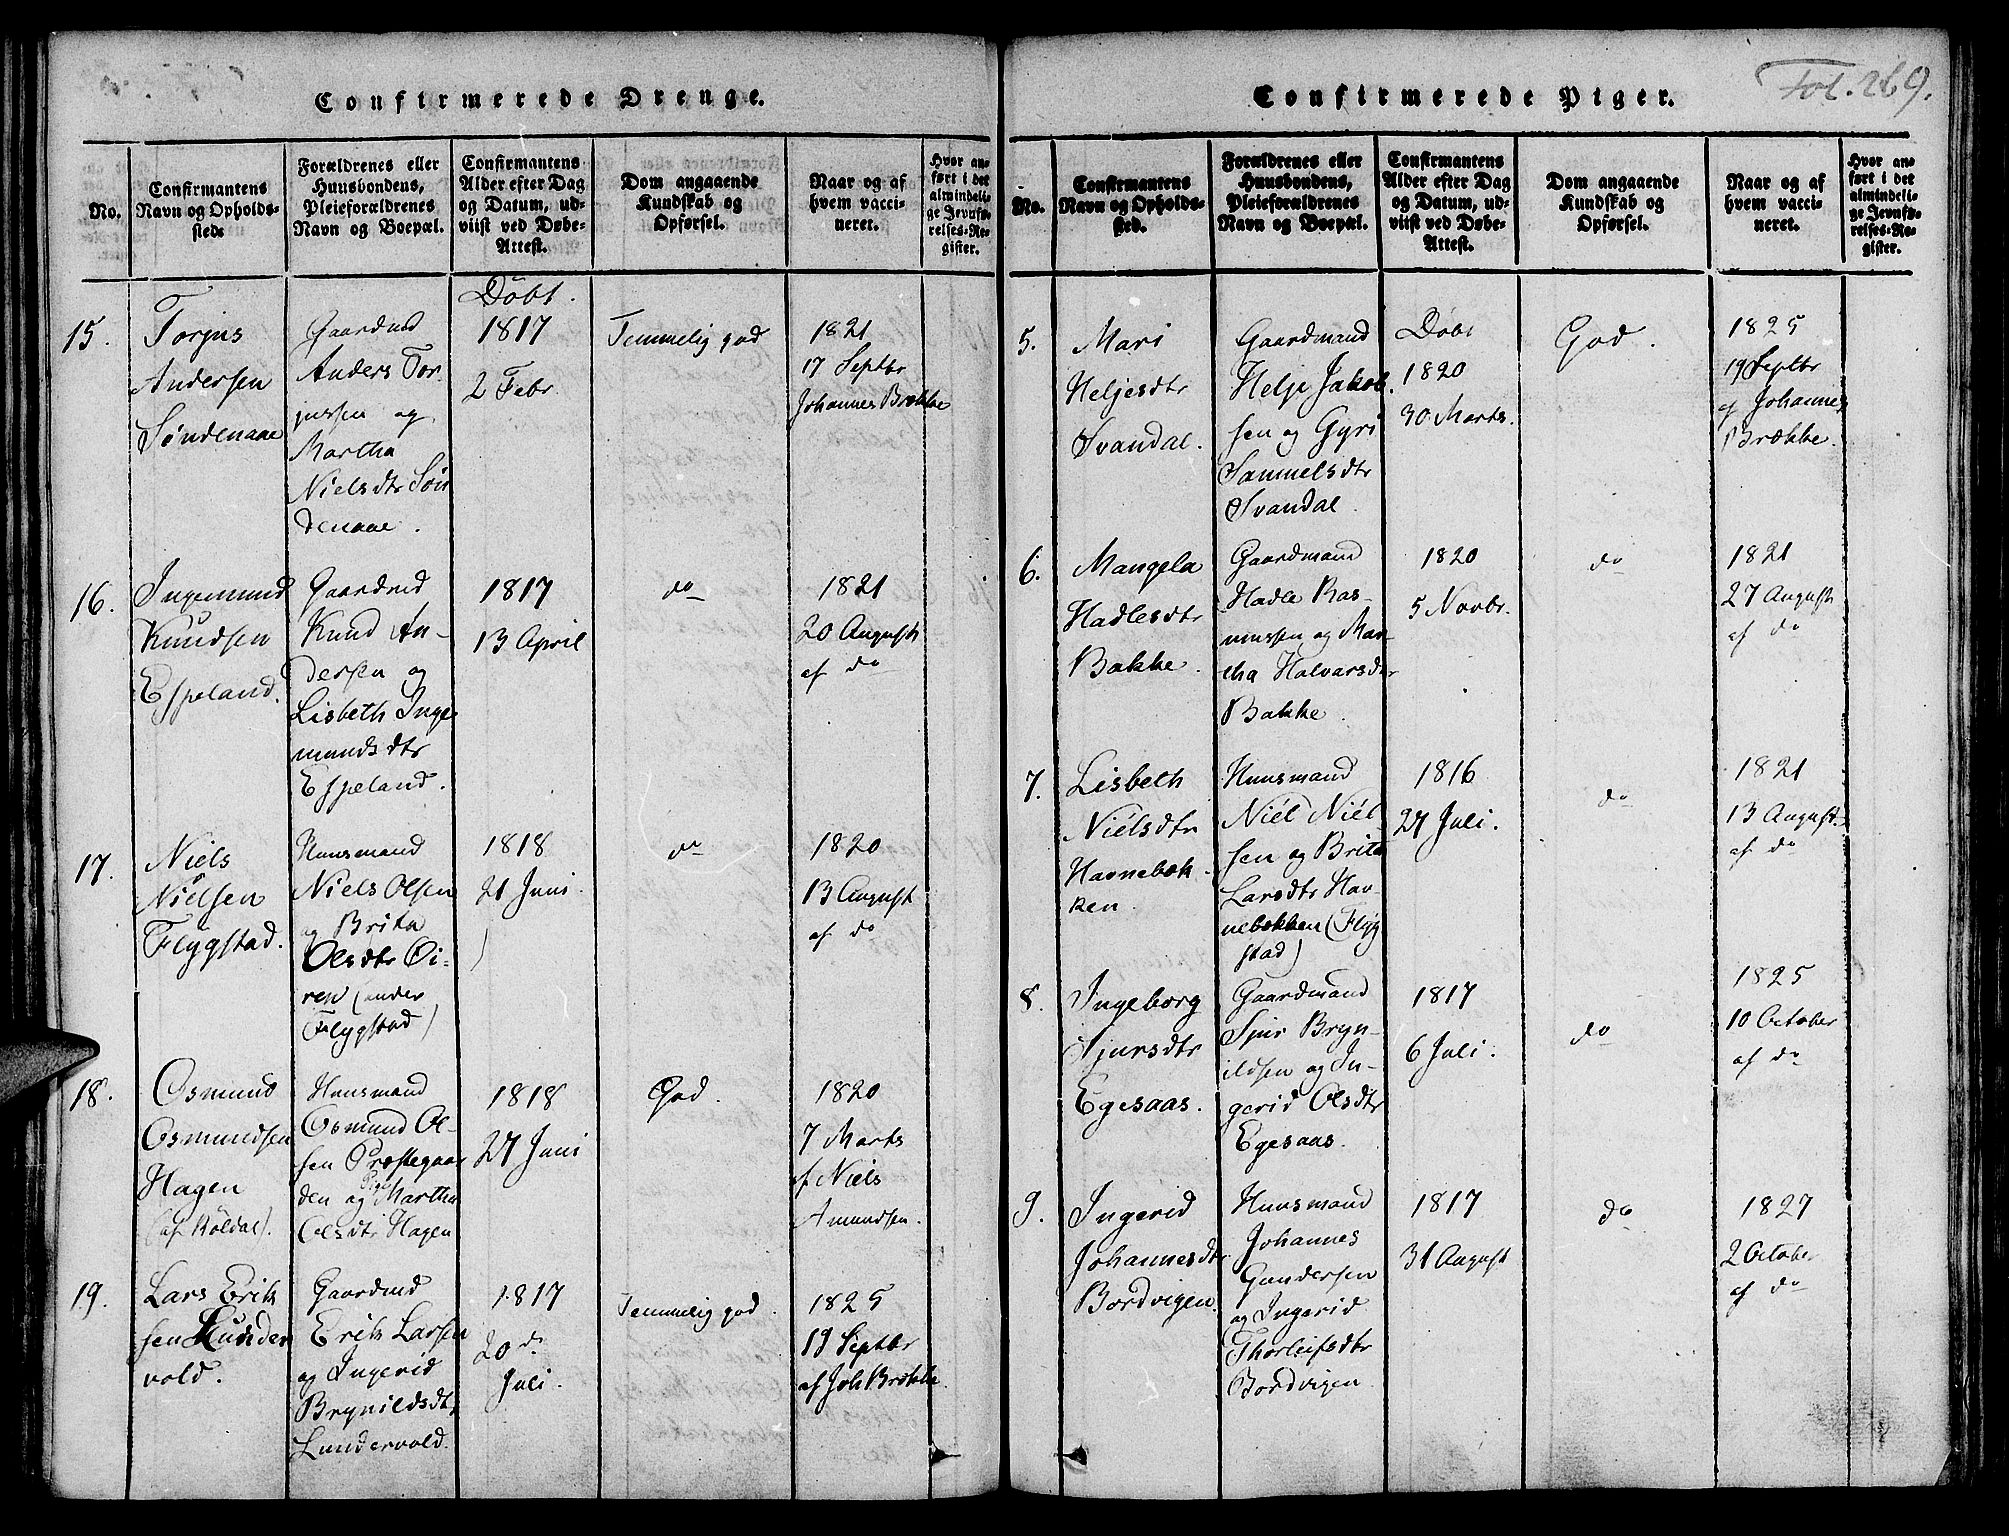 Confirmerede Drenge.
No.
Confirmantens
Navn og Opholds-
stede
Forældrenes eller
Huusbondens,
Pleieforældrenes
Navn og Boepæl.
Confirmantens
Alder efter Dag
og Datum, ud-
viist ved Døbe-
Attest.
Dom angaaende
Kundskab og
Opførsel.
Naar og af
hvem vacci-
neret.
Hvor an-
ført i det
almindeli-
ge Jevnfø-
relses-Re-
gister.
15.
Torjus
Andersen
Søndenaae
Gaardmd
Anders Tor-
jussen og
Martha
Nielsdtr Søn
denaae.
Døbt.
1817
2 Febr.
Temmelig god
1821
17 Septbr
Johannes Brække
16.
Ingemund
Knudsen
Espeland.
Gaardmd
Knud An-
dersen og
Lisbeth Inge
mundsdtr
Espeland.
1817
13 April
do
1821
20 August
af do
17.
Niels
Nielsen
Flygstad.
Huusmand
Niels Olsen
og Brita
Olsdtr Öi-
ren (under
Flygstad)
1818
21 Juni.
do
1820
13 August
af do
18.
Osmund
Osmundsen
Hagen
(af Röldal).
Huusmand
Osmund Ol-
sen Præstegaar
den og Pige Martha
Olsdtr Hagen
1818
27 Juni
God.
1820
7 Marts
af Niels
Amundsen.
19.
Lars Erik
sen Lunder
vold.
Gaardmd
Erik Larsen
og Ingerid
Brynildsdtr
Lundervold.
1817
20 d.
Juli.
Temmelig god.
1825
19 Septbr
af Joh Brække
Fol. 269.
Confirmerede Piger.
No.
Confirmantens
Navn og Opholds-
sted.
Forældrenes eller
Huusbondens,
Pleieforældrenes
Navn og Boepæl.
Confirmantens
Alder efter Dag
og Datum, ud-
viist ved Døbe-
Attest.
Dom angaaende
Kundskab og
Opførsel.
Naar og af
hvem vacci-
neret.
Hvor an-
ført i det
almindeli-
ge Jevnfø-
relses-Re-
gister.
5.
Mari
Heljesdtr
Svandal.
Gaardmand
Helje Jakob.
sen og Gyri
Samuelsdtr
Svandal.
Døbt
1820
30 Marts.
God.
1825
19 Septbr
af Johannes
Brække.
6.
Mangela
Hadlesdtr
Bakke.
Gaardmand
Hadle Ras-
mussen og Mar-
tha Halvarsdtr
Bakke.
1820
5 Novbr.
do
1821
27 August
af do
7.
Lisbeth
Nielsdtr
Havnebæk-
ken.
Huusmand
Niél Niél-
sen og Brita
Larsdtr Hav-
nebækken (Flyg
stad)
1816
27 Juli.
do
1821
13 August.
af do
8.
Ingeborg
Sjursdtr
Egesaas.
Gaardmand
Sjur Bryn-
ildsen og In-
gerid Olsdtr
Egesaas.
1817
6 Juli.
do
1825
10 October
af do
9.
Ingerid
Johannesdtr
Bordvigen.
Huusmand
Johannes
Gundersen
og Ingerid
Thorleifsdtr
Bordvigen
1817
31 August
do
1827
2 October
af do